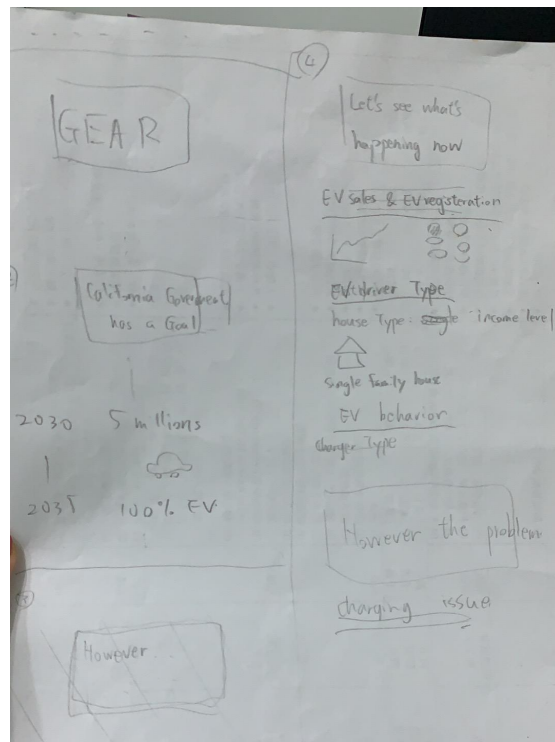 GEAR
California Goverment
has a Goal
2030 5 millions
2035 100% EV
③
However
④
Let's see what's
happening now
EV sales & EV registeration
EV driver Type
house Type: single income level
single family house
EV behavior
charger Type
However the problem
charging issue